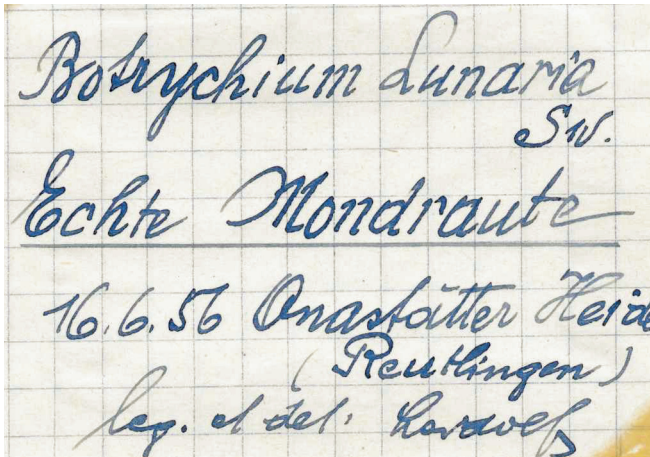 Botrychium Lunaria
Sw.
Echte Mondraute
16.6.56 Onastätter Heide
(Reutlingen)
leg. et det.